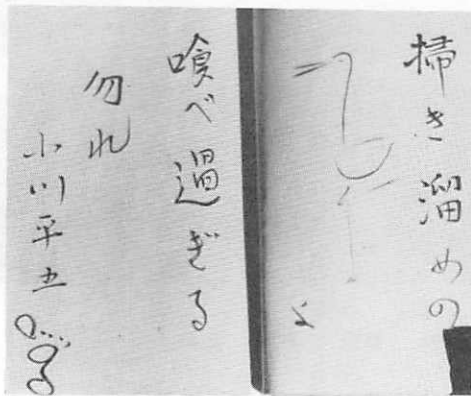 掃き溜めの
よ
喰べ過ぎる
勿れ
小川平五